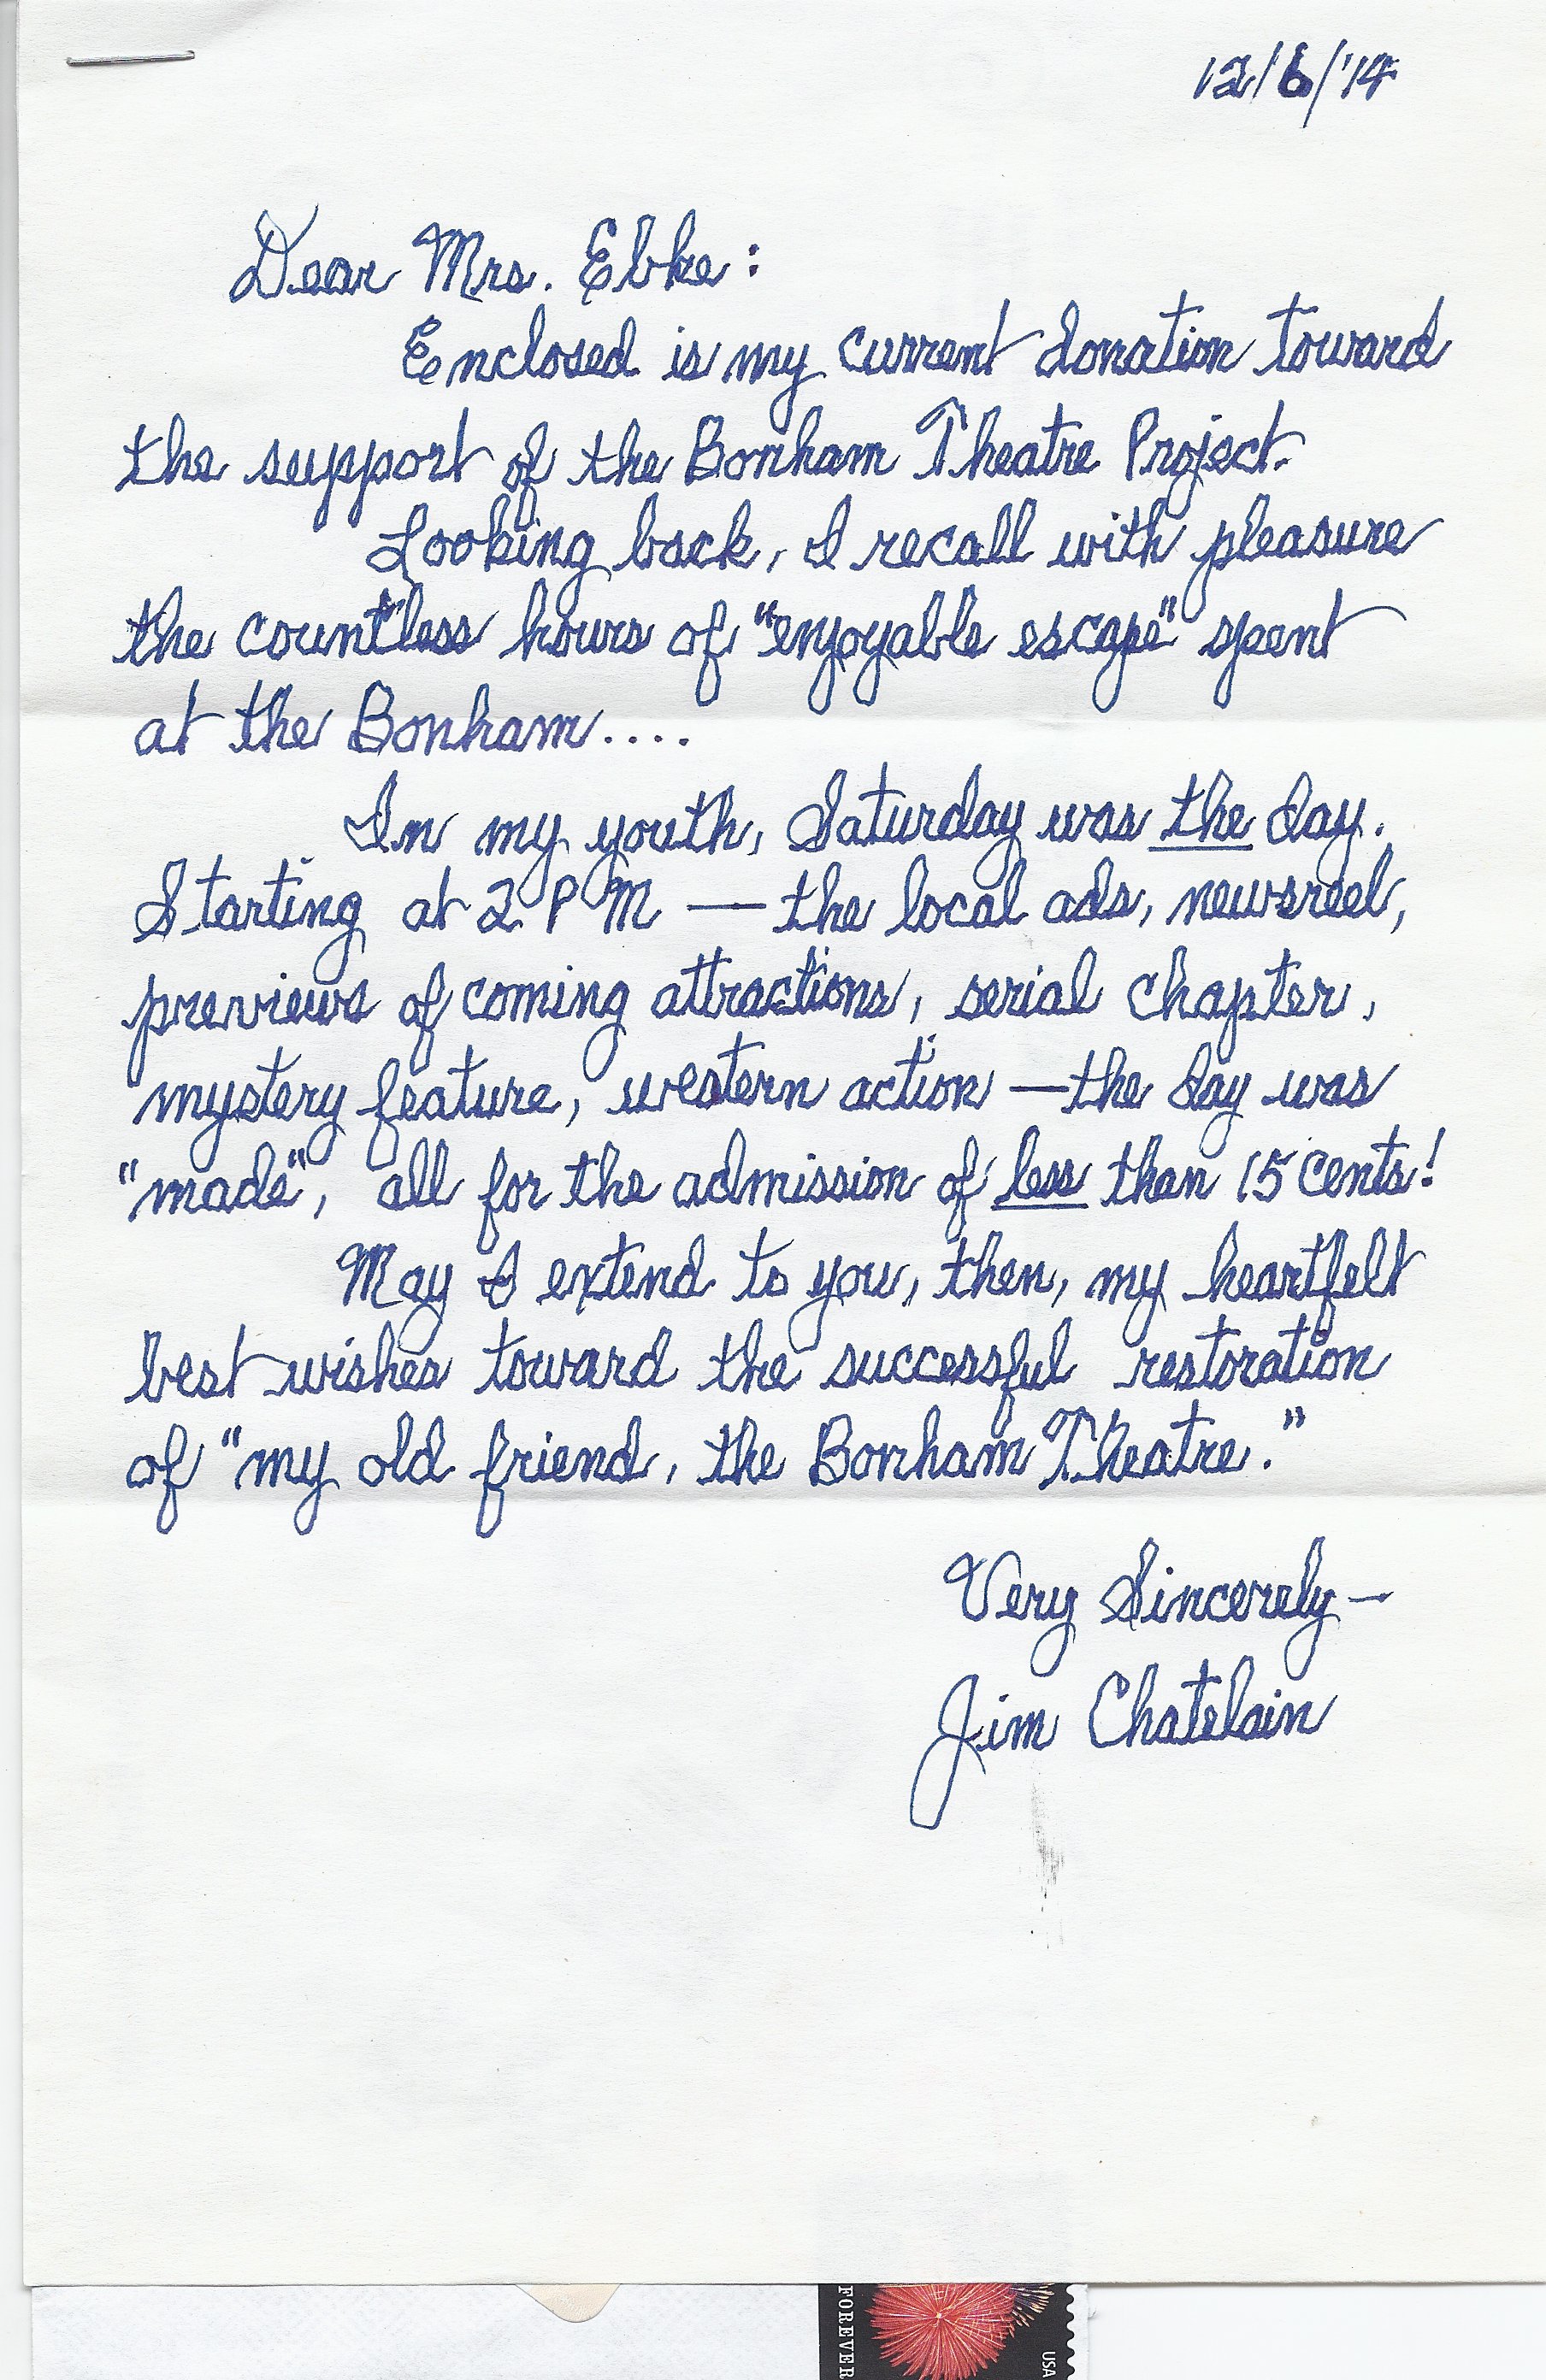 12/6/'14
Dear Mrs. Ebke:
Enclosed is my current donation toward
the support of the Bonham Theatre Project.
Looking back, I recall with pleasure
the countless hours of "enjoyable escape" spent
at the Bonham....
In my youth, Saturday was the day.
Starting at 2 PM — the local ads, newsreel,
previews of coming attractions, serial chapter,
mystery feature, western action — the day was
"made", all for the admission of less than 15 cents!
May I extend to you, then, my heartfelt
best wishes toward the successful restoration
of "my old friend, the Bonham Theatre."
Very Sincerely —
Jim Chatelain
FOREVER
USA